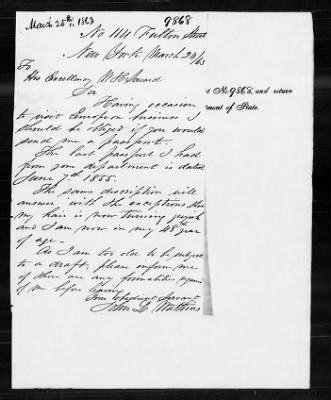 March 25th, 1863
9868
No 114 Fulton Street
New York March 24/63
To
His Excellency W H Seward
Sir
Having occasion
to visit European business I
should be obliged if you would
send me a passport.
The last passport I had
from your department is dated
June 7th 1855.
The same description will
answer with the exceptions that
my hair is now turning grayish
and I am now in my 48th year
of age.
As I am too old to be subject
to a draft, please inform me
if there are any formalities required
of me before leaving
Your obedient Servant
John L Watkins
t No. 9868, and return
ment of State.